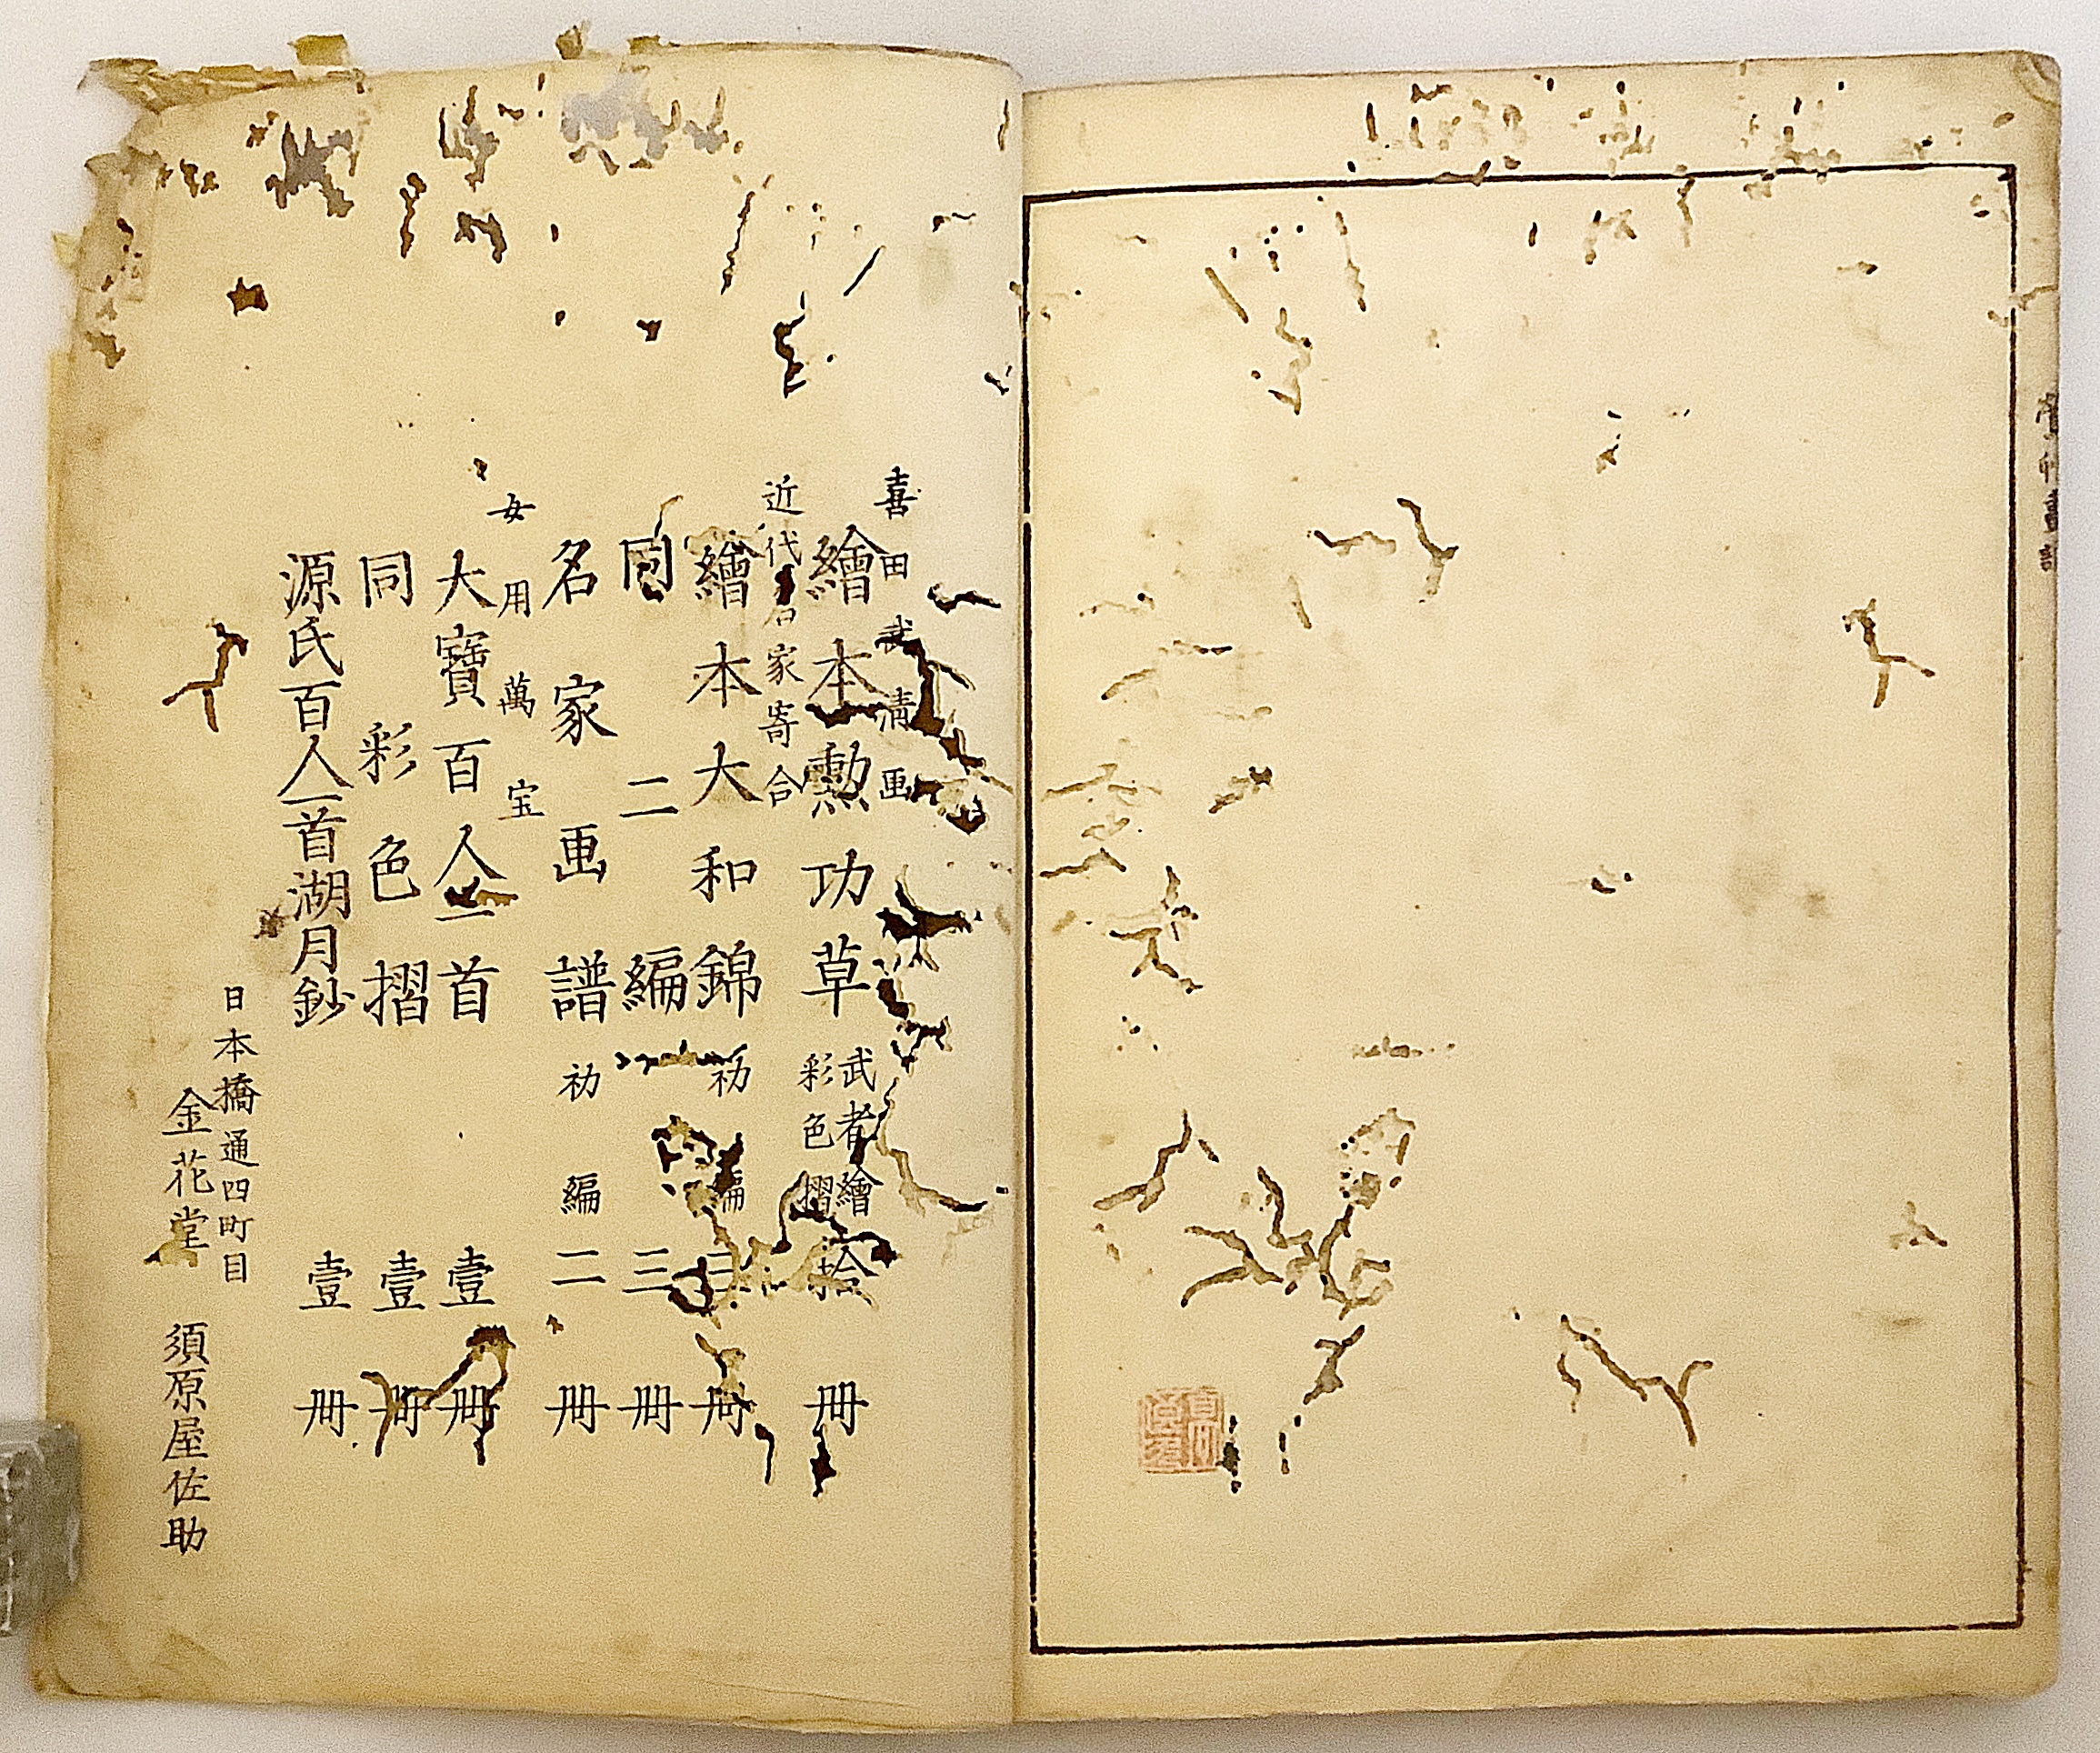 喜田武清画
繪本勲功草 武者繪 彩色摺 拾冊
近代名家寄合
繪本大和錦 初編 三冊
同二編 三冊
名家画譜 初編 二冊
女用萬宝
大寶百人一首 壹冊
同彩色摺 壹冊
源氏百人一首湖月鈔 壹冊
日本橋通四町目
金花堂 須原屋佐助